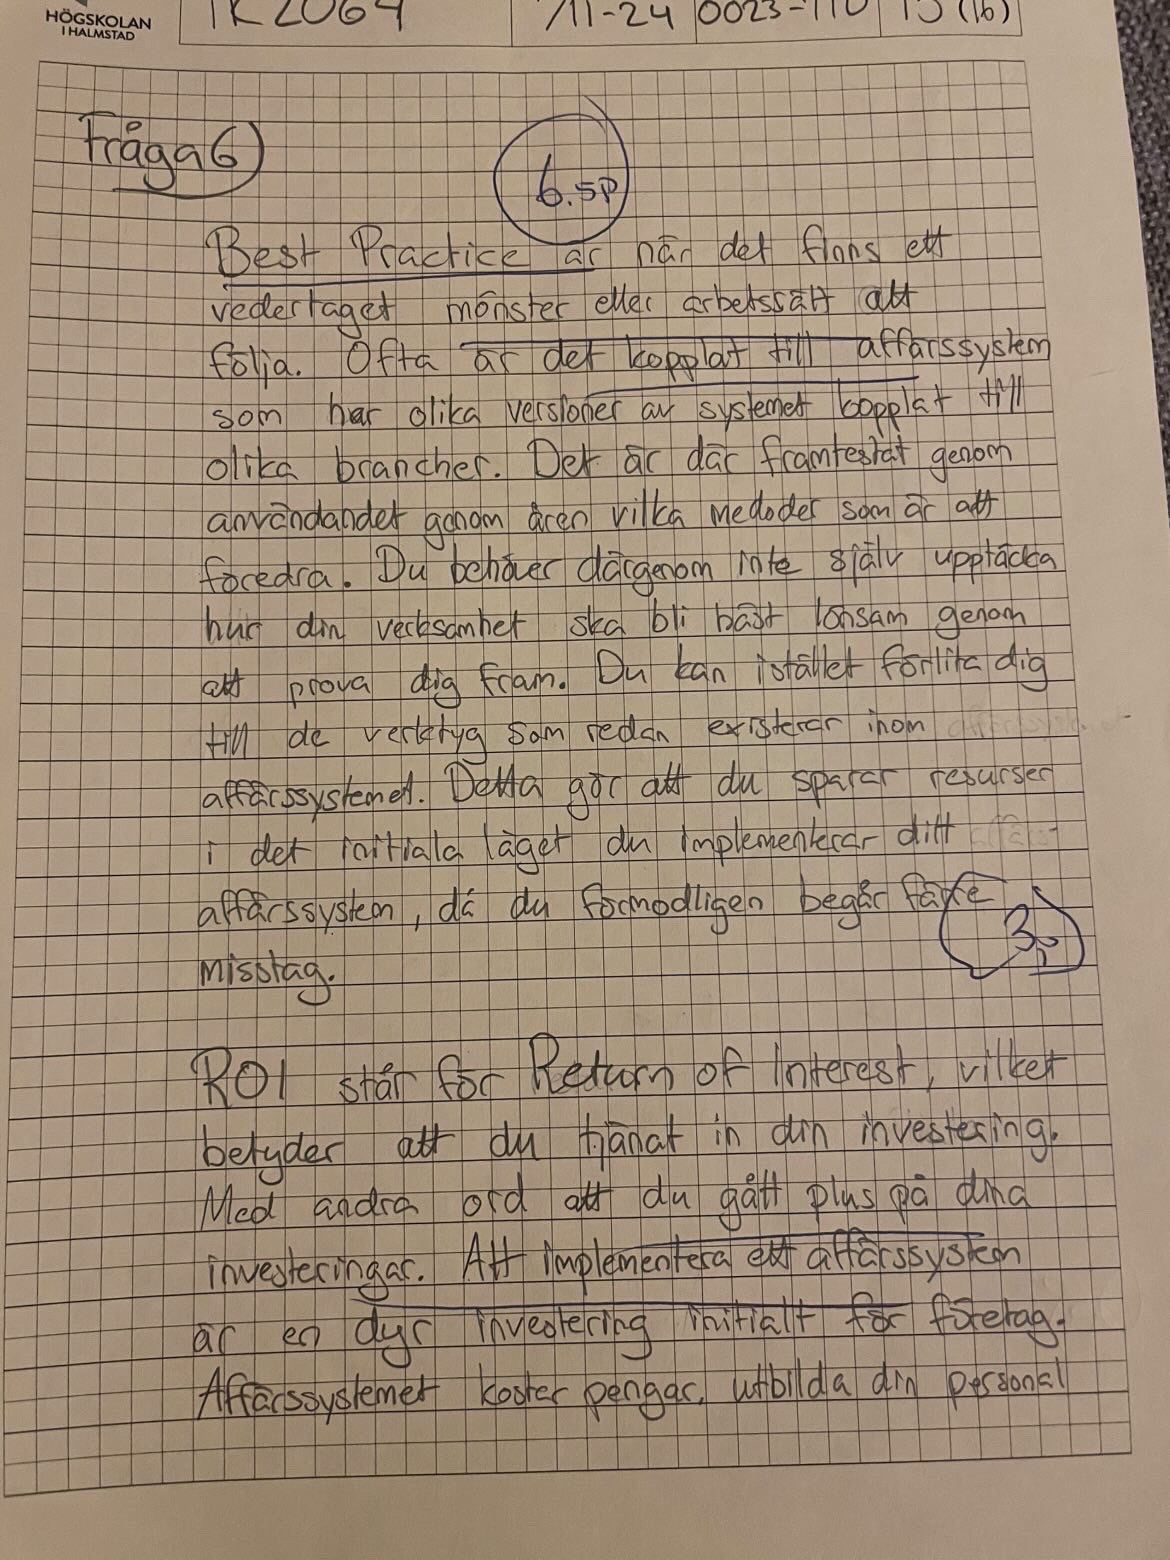 HÖGSKOLAN
I HALMSTAD
/11-24
0023-110
15 (16)
Fråga 6)
6.5p
Best Practice är när det finns ett
vedertaget mönster eller arbetssätt att
följa. Ofta är det kopplat till affärssystem
som har olika versioner av systemet kopplat till
olika brancher. Det är där framtestat genom
användandet genom åren vilka medoder som är att
föredra. Du behöver därgenom inte själv upptäcka
hur din verksamhet ska bli bäst lönsam genom
att prova dig fram. Du kan istället förlita dig
till de verktyg som redan existerar inom
affärssystemet. Detta gör att du sparar resurser
i det initiala läget du implementerar ditt
affärssystem, då du förmodligen begår färre
misstag.
3p
ROI står för Return of Interest, vilket
betyder att du tjänat in din investering.
Med andra ord att du gått plus på dina
investeringar. Att implementera ett affärssystem
är en dyr investering initialt för företag.
Affärssystemet kostar pengar, utbilda din personal